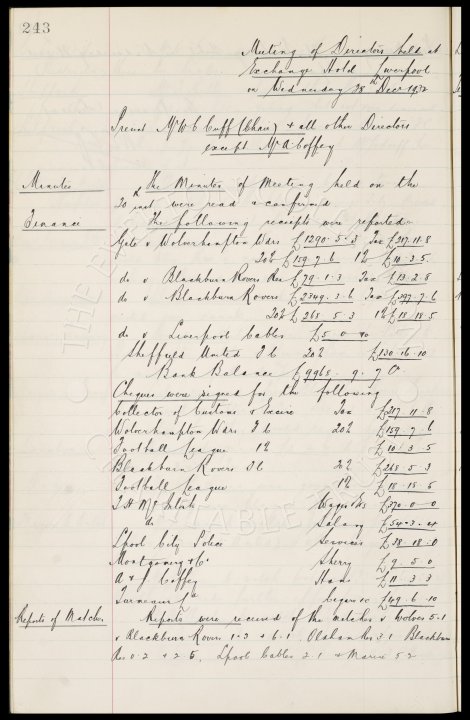 243
Meeting of Directors held at
Exchange Hotel Liverpool
on Wednesday 28th Decr 1932
Present Mr W C Cuff (Chair) & all other Directors
except Mr A Coffey
Minutes
The Minutes of Meeting held on the
20 inst were read & confirmed
Finance
The following receipts were reported
Gate v Wolverhampton Wdrs £1290-5-3 Tax £217-11-8
20% £159-7-6 1% £10-3-5
do v Blackburn Rovers Res £79-1-3 Tax £13-2-8
do v Blackburn Rovers £2349-3-6 Tax £397-7-6
20% £265-5-3 1% £18-18-5
do v Liverpool Cables £5-0-10
Sheffield United F C 20% £130-16-10
Bank Balance £9965-9-7
Cheques were signed for the following
Collector of Customs & Excise Tax £217 11-8
Wolverhampton Wdrs F C 20% £159-7-6
Football League 1% £10-3-5
Blackburn Rovers F C 20% £265-5-3
Football League 1% £18-18-5
Wages £370-0-0
do Salary
Lpool City Police Services £38-18-0
Montgomery & Co Sherry £9-5-0
A & J Coffey Ham £11-3-3
£49-6-10
Reports of Matches
Reports were received of the matches v Wolves 5.1
v Blackburn Rovers 1-3 & 6.1 Oldham Res 3.1 Blackburn
Res 0.2 & 2 5, Lpool Cables 2 1 & Marine 5 2
THE EVERTON
CHARITABLE TRUST